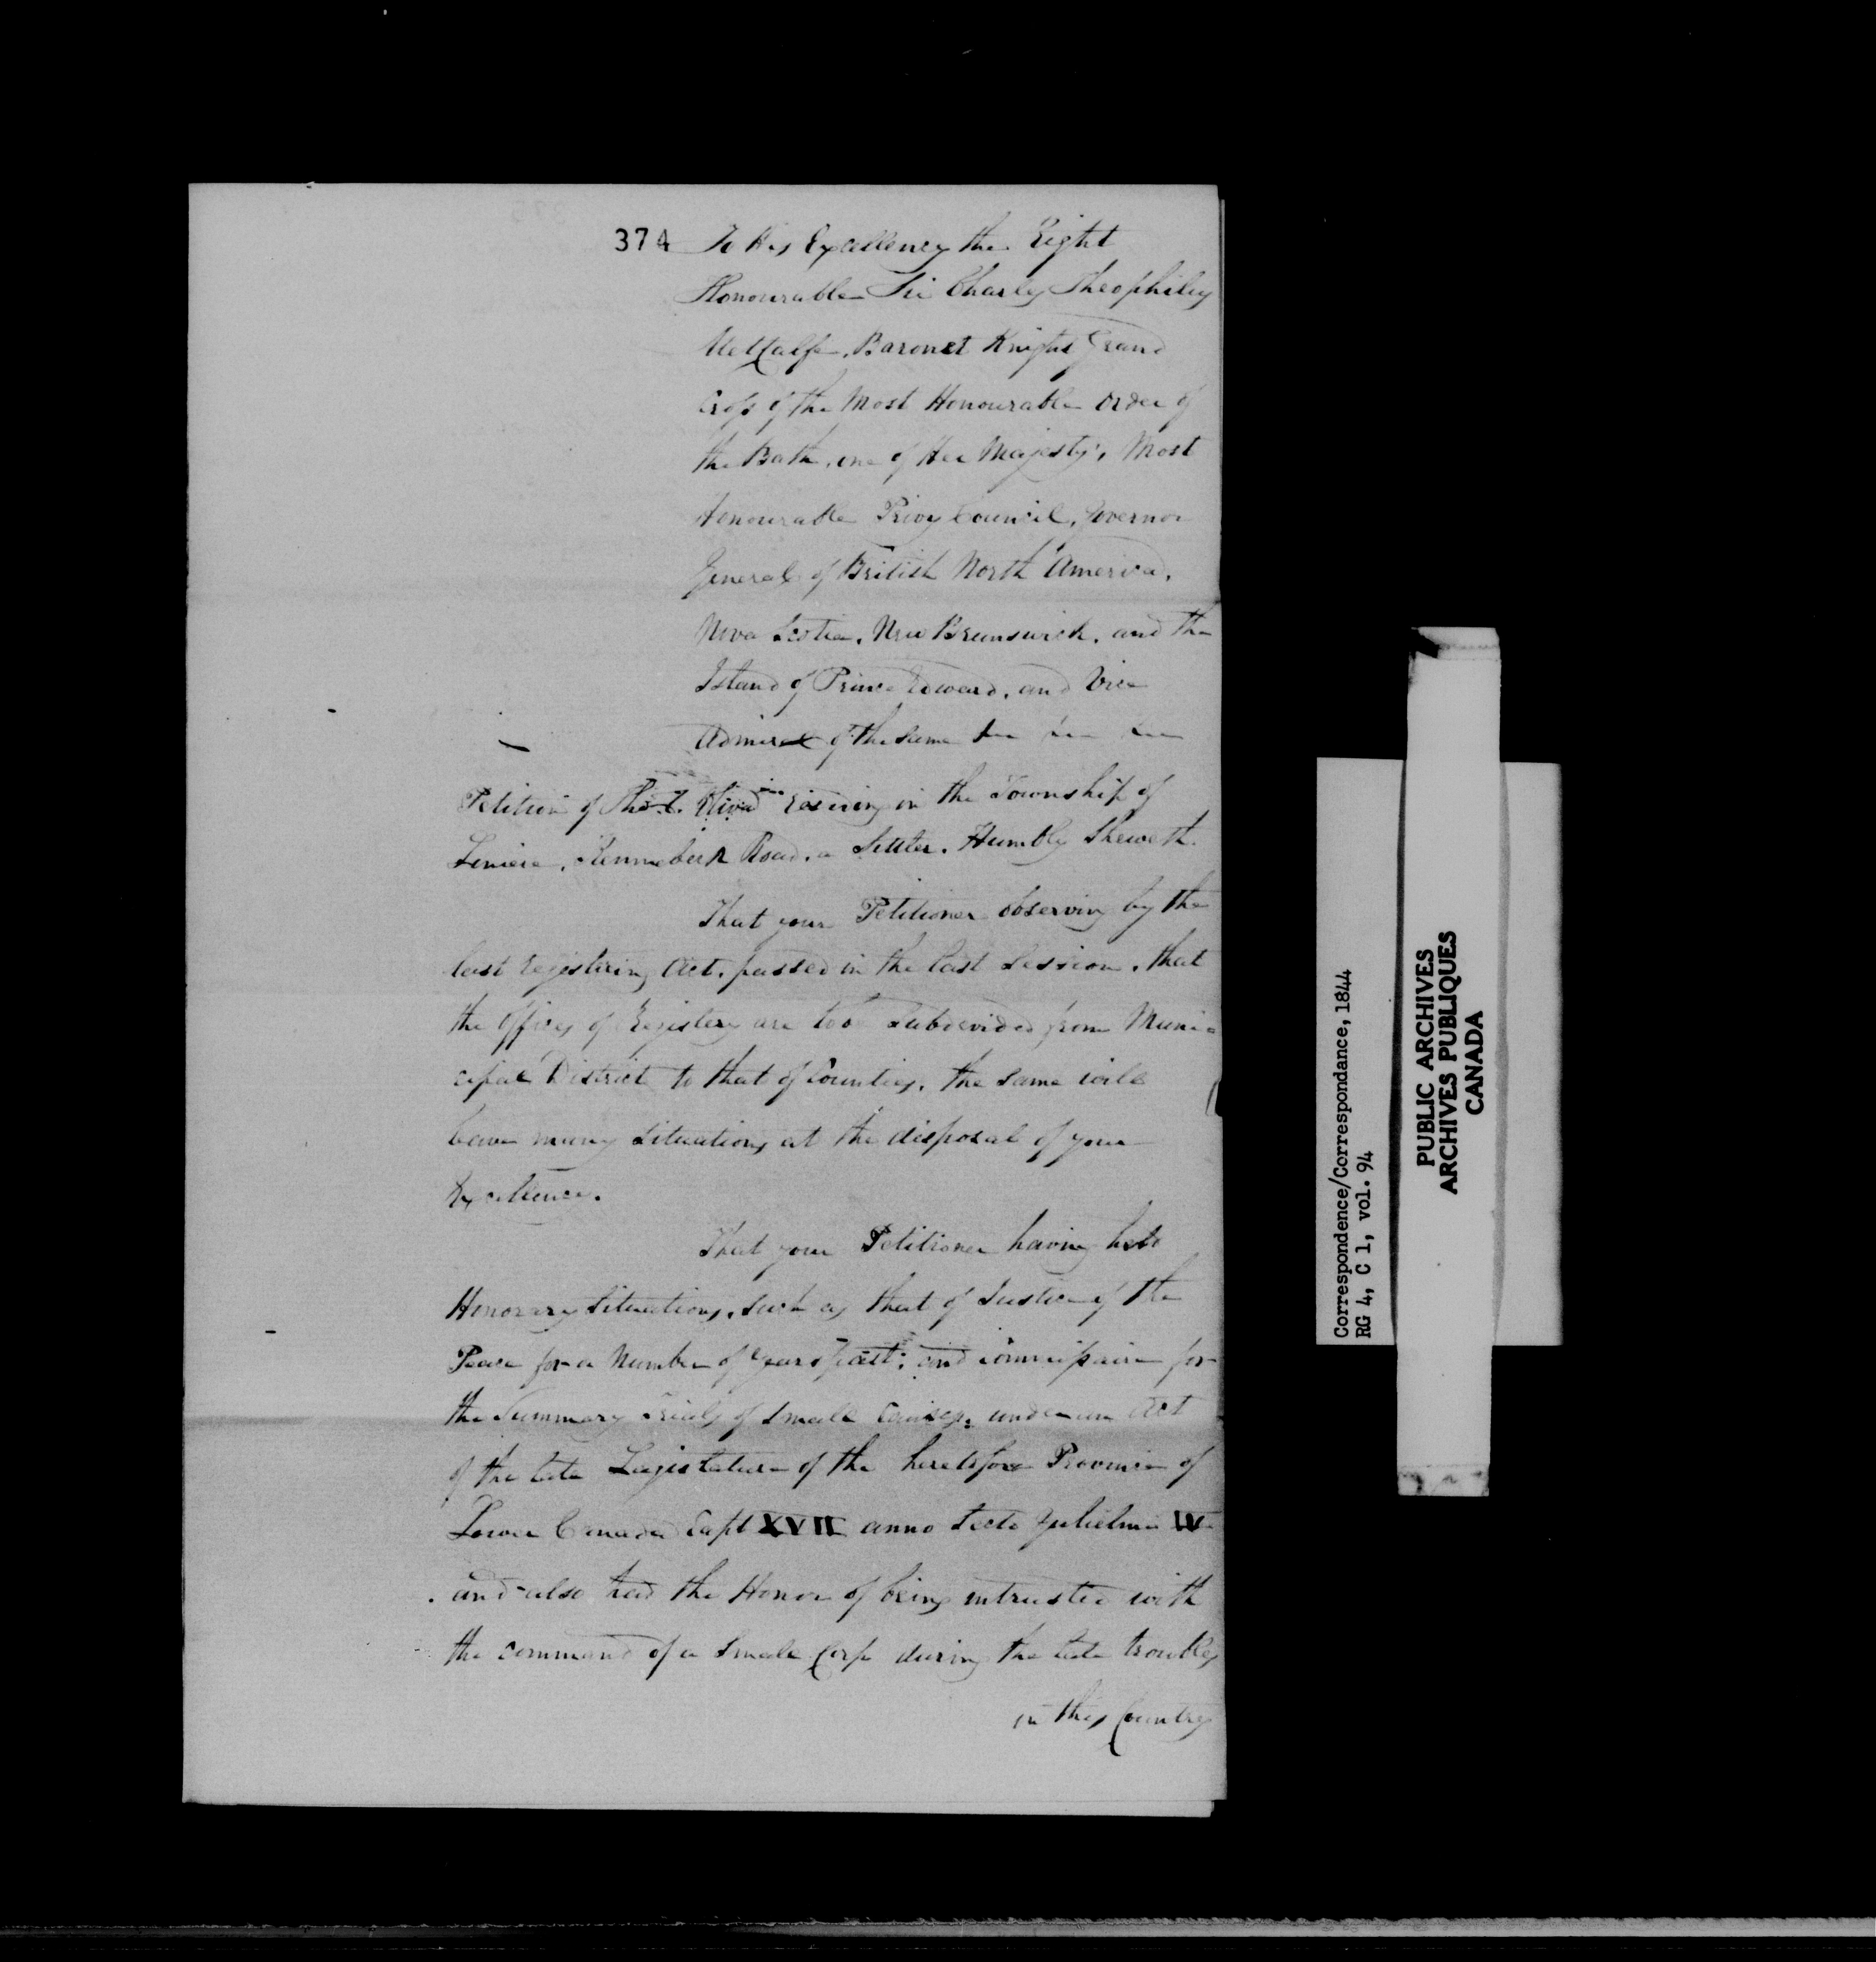 374 To His Excellency the Right
Honourable Sir Charles Theophilus
Metcalfe, Baronet Knight Grand
Cross of the Most Honourable Order of
the Bath, one of Her Majesty's Most
Honourable Privy Council, Governor
General of British North America,
Nova Scotia, New Brunswick, and the
Island of Prince Edward, and Vice
Admiral of the same
Petition of in the Township of
Liniere, Kennebeck Road, a Settler. Humbly Sheweth.
That your Petitioner observing by the
last registering Act, passed in the last Session, that
the Offices of Registery are to be Subdevided from Muni=
cipal District to that of Counties, the same will
leave many Situations at the disposal of your
Excellence.
That your Petitioner having held
Honorary Situations, such as that of Justice of the
Peace for a Number of years past; and for
the Summary Trials of Small Causes, under an Act
of the late Legislature of the heretofore Province of
Lower Canada Capt XVII anno Sexto Gulielmi IV
and also had the Honor of being intrusted with
the command of a Small Corps during the late troubles
in this Country
Correspondence/Correspondance, 1844
RG 4, C 1, vol. 94
PUBLIC ARCHIVES
ARCHIVES PUBLIQUES
CANADA